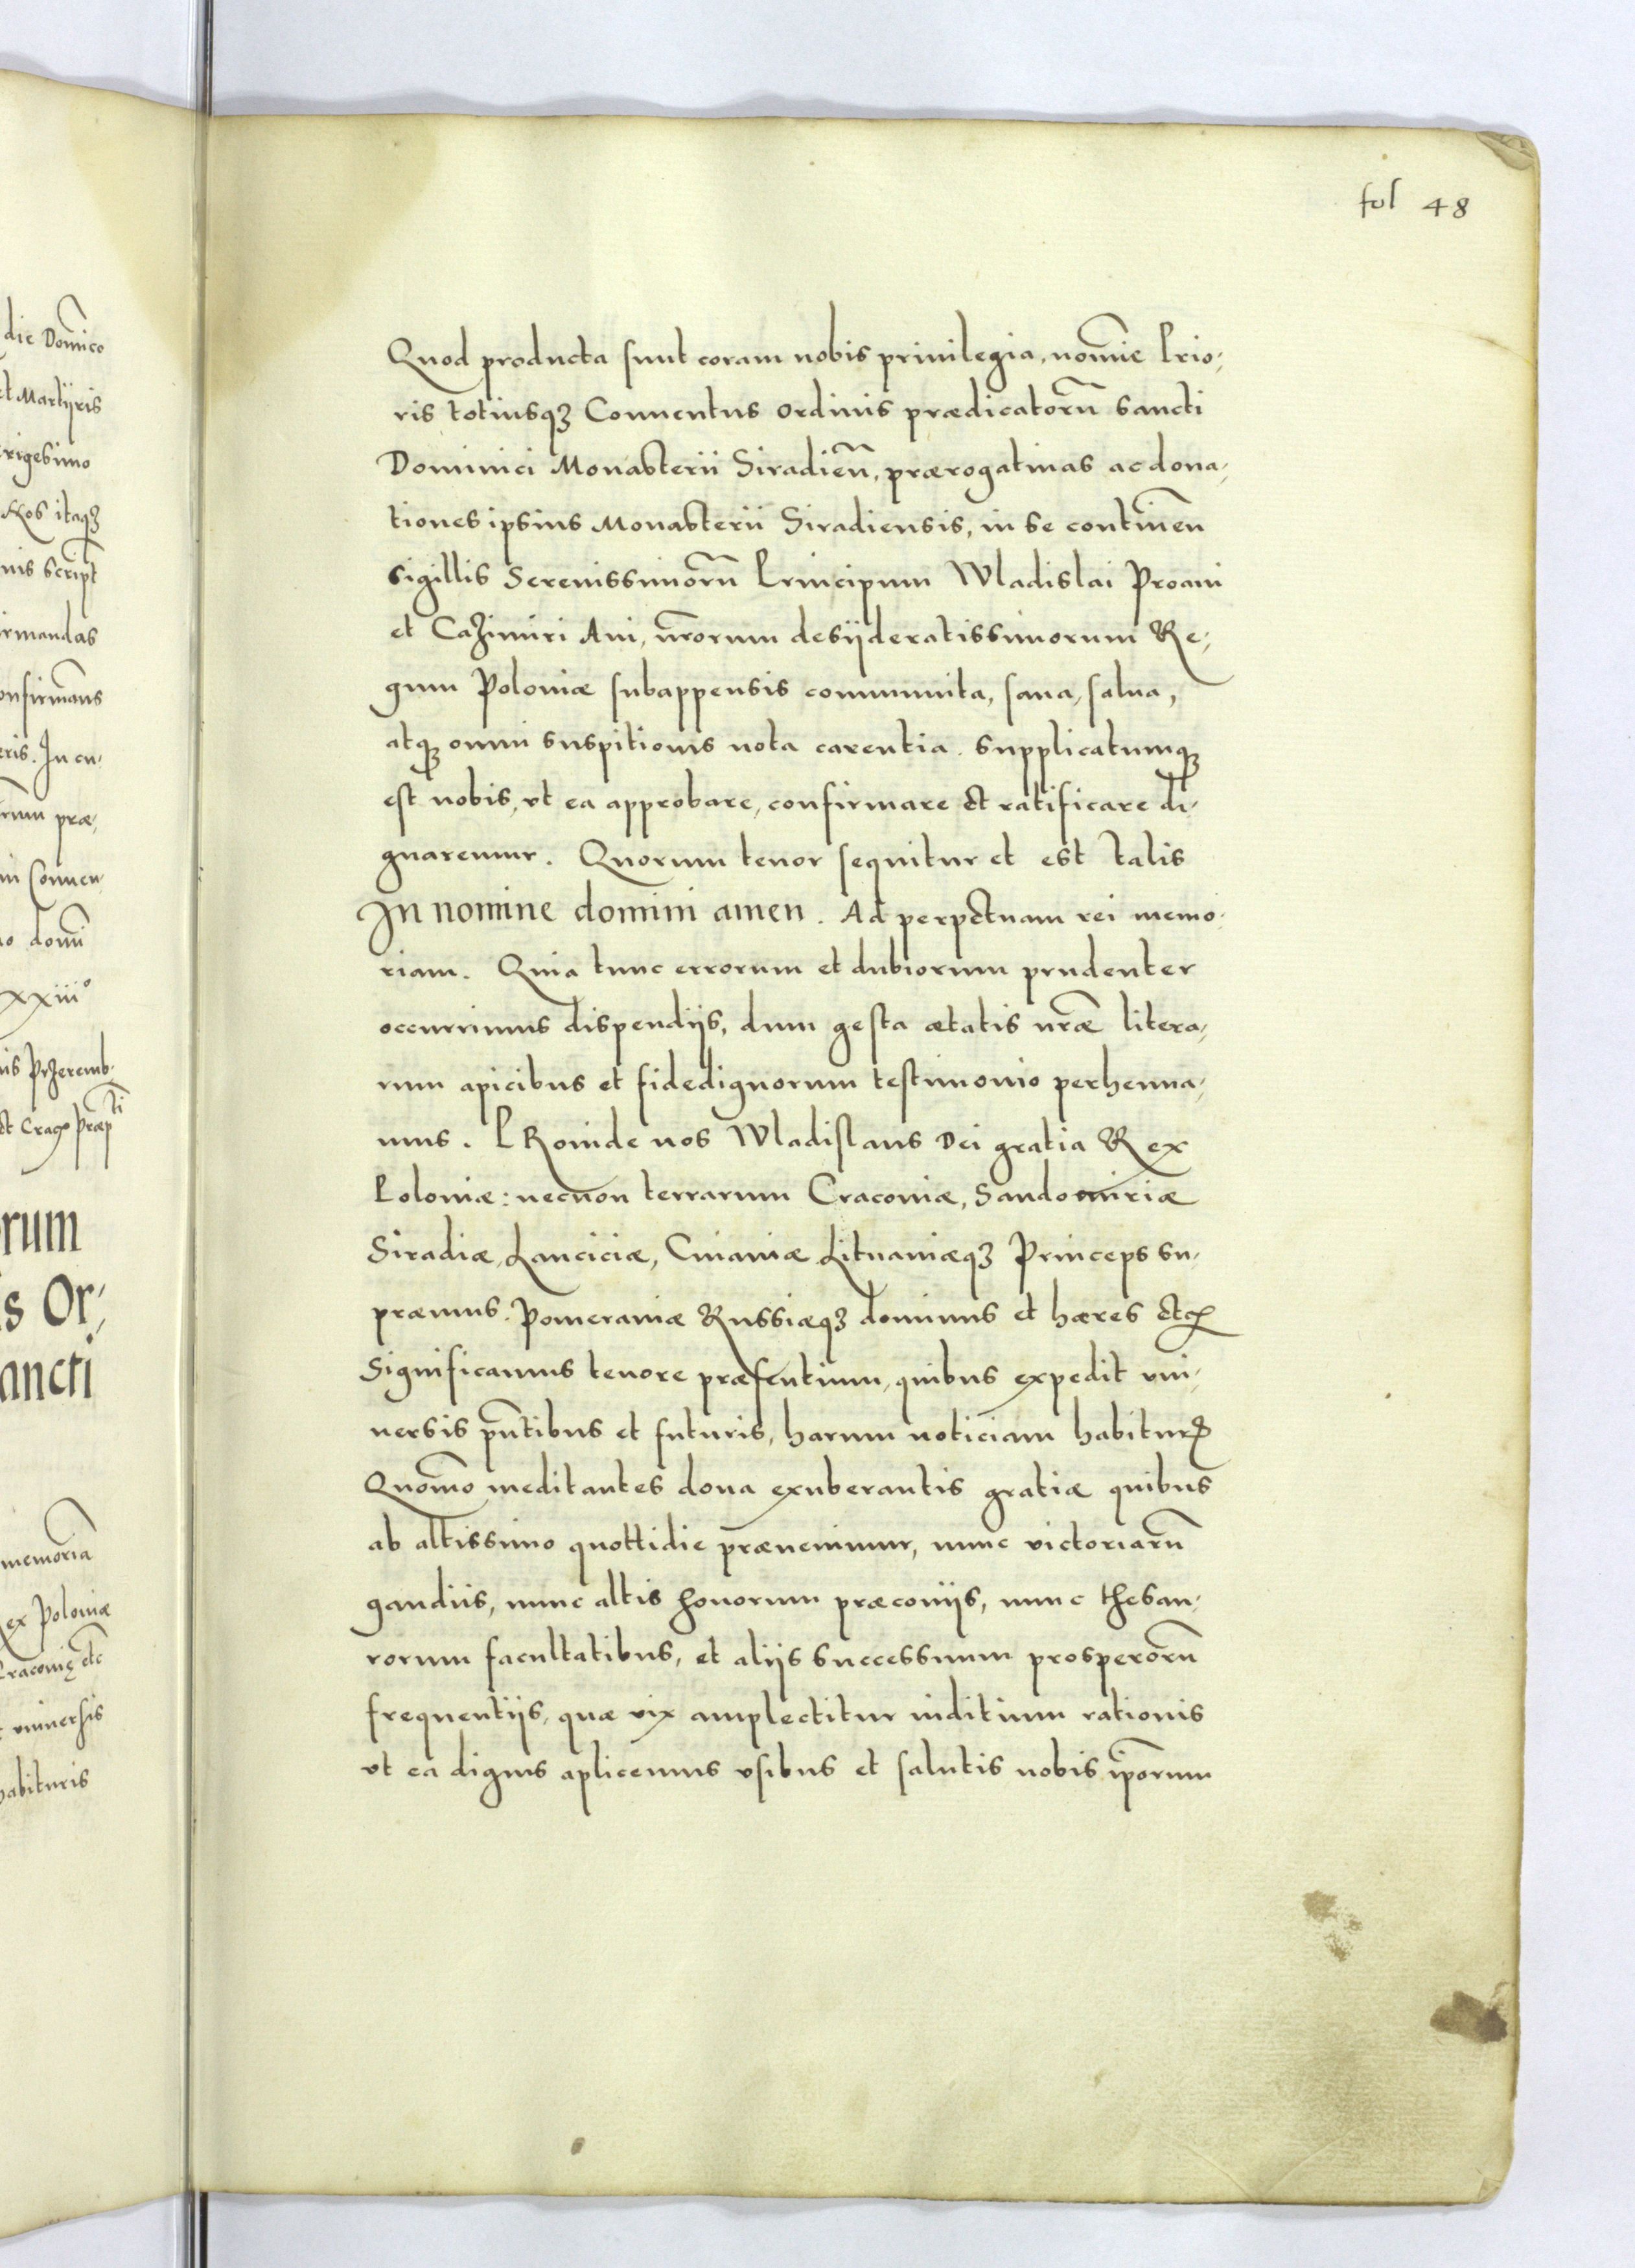 fol 48
Quod producta sunt coram nobis priuilegia, nomĩe Prio-
ris totiusqȝ Conuentus ordinis prædicatorũ sancti
Dominici Monasterii Siradieñ, prærogatiuas ac dona-
tiones ipsius Monasterii Siradiensis, in se contineñ
sigillis Serenissimorũ Principum Wladislai Proaui
et Cazimiri Aui, nr̃orum desyderatissimorum Re-
gum Poloniæ subappensis communita, sana, salua,
atqȝ omni suspitionis nota carentia. Supplicatumqȝ
est nobis, vt ea approbare, confirmare et ratificare di-
gnaremur. Quorum tenor sequitur et est talis
In nomine domini amen. Ad perpetuam rei memo-
riam. Quia tunc errorum et dubiorum prudenter
occurrimus dispendijs, dum gesta ætatis nr̃æ litera-
rum apicibus et fidedignorum testimonio perhenna-
mus. PRoinde nos Wladislaus Dei gratia Rex
Poloniæ: necnon terrarum Cracouiæ, Sandomiriæ
Siradiæ, Lanciciæ, Cuiauiæ Lituaniæqȝ Princeps su-
præmus. Pomeraniæ Russiæqȝ dominus et hæres etc
Significamus tenore præsentium, quibus expedit vni-
uersis pñtibus et futuris, harum noticiam habiturꝭ
Quom̃o meditantes dona exuberantis gratiæ quibus
ab altissimo quottidie præuenimur, nunc victoriarũ
gaudiis, nunc altis honorum præconijs, nunc thesau-
rorum facultatibus, et alijs successuum prosperorũ
frequentijs, quæ vix amplectitur iuditium rationis
vt ea dignis aplicemus vsibus et salutis nobis ip̃orum
die Domĩco
et Martijris
rigesimo
Nos itaqȝ
nis script
irmandas
onfirmãns
eris. In cu-
rum præ-
in Conuen-
no domĩ
xxiiiº
is Przeremb-
et Crac̃ Præpti
orum
s Or-
ancti
memoria
ex Poloniæ
Cracouię etc
vniuersis
habituris